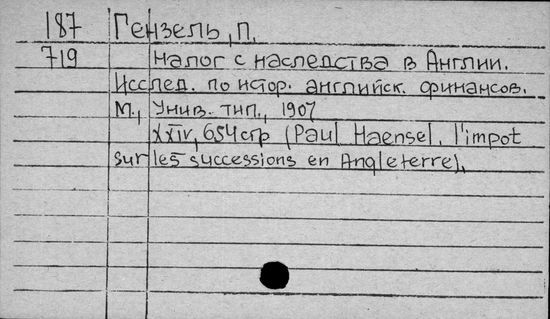 187 Гензель, П.
719 Налог с наследства в Англии.
Исслед. по истор. английск. финансов.
М., Унив. тип., 1907
XXIV, 654 стр (Paul Haensel, l'impot
sur les successions en Angleterre).